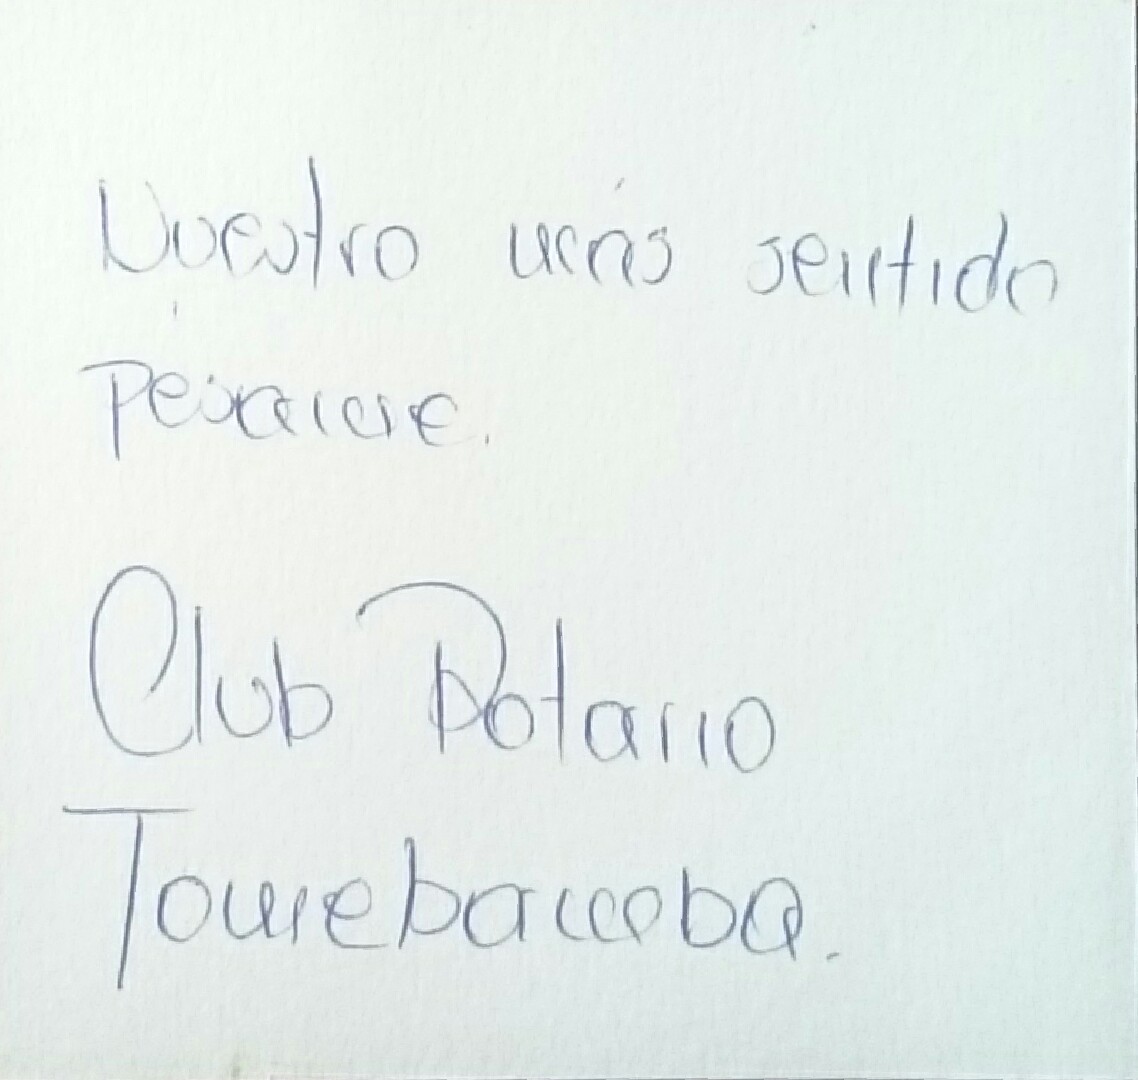 Nuestro más sentido
pésame.
Club Rotario
Tomebamba.